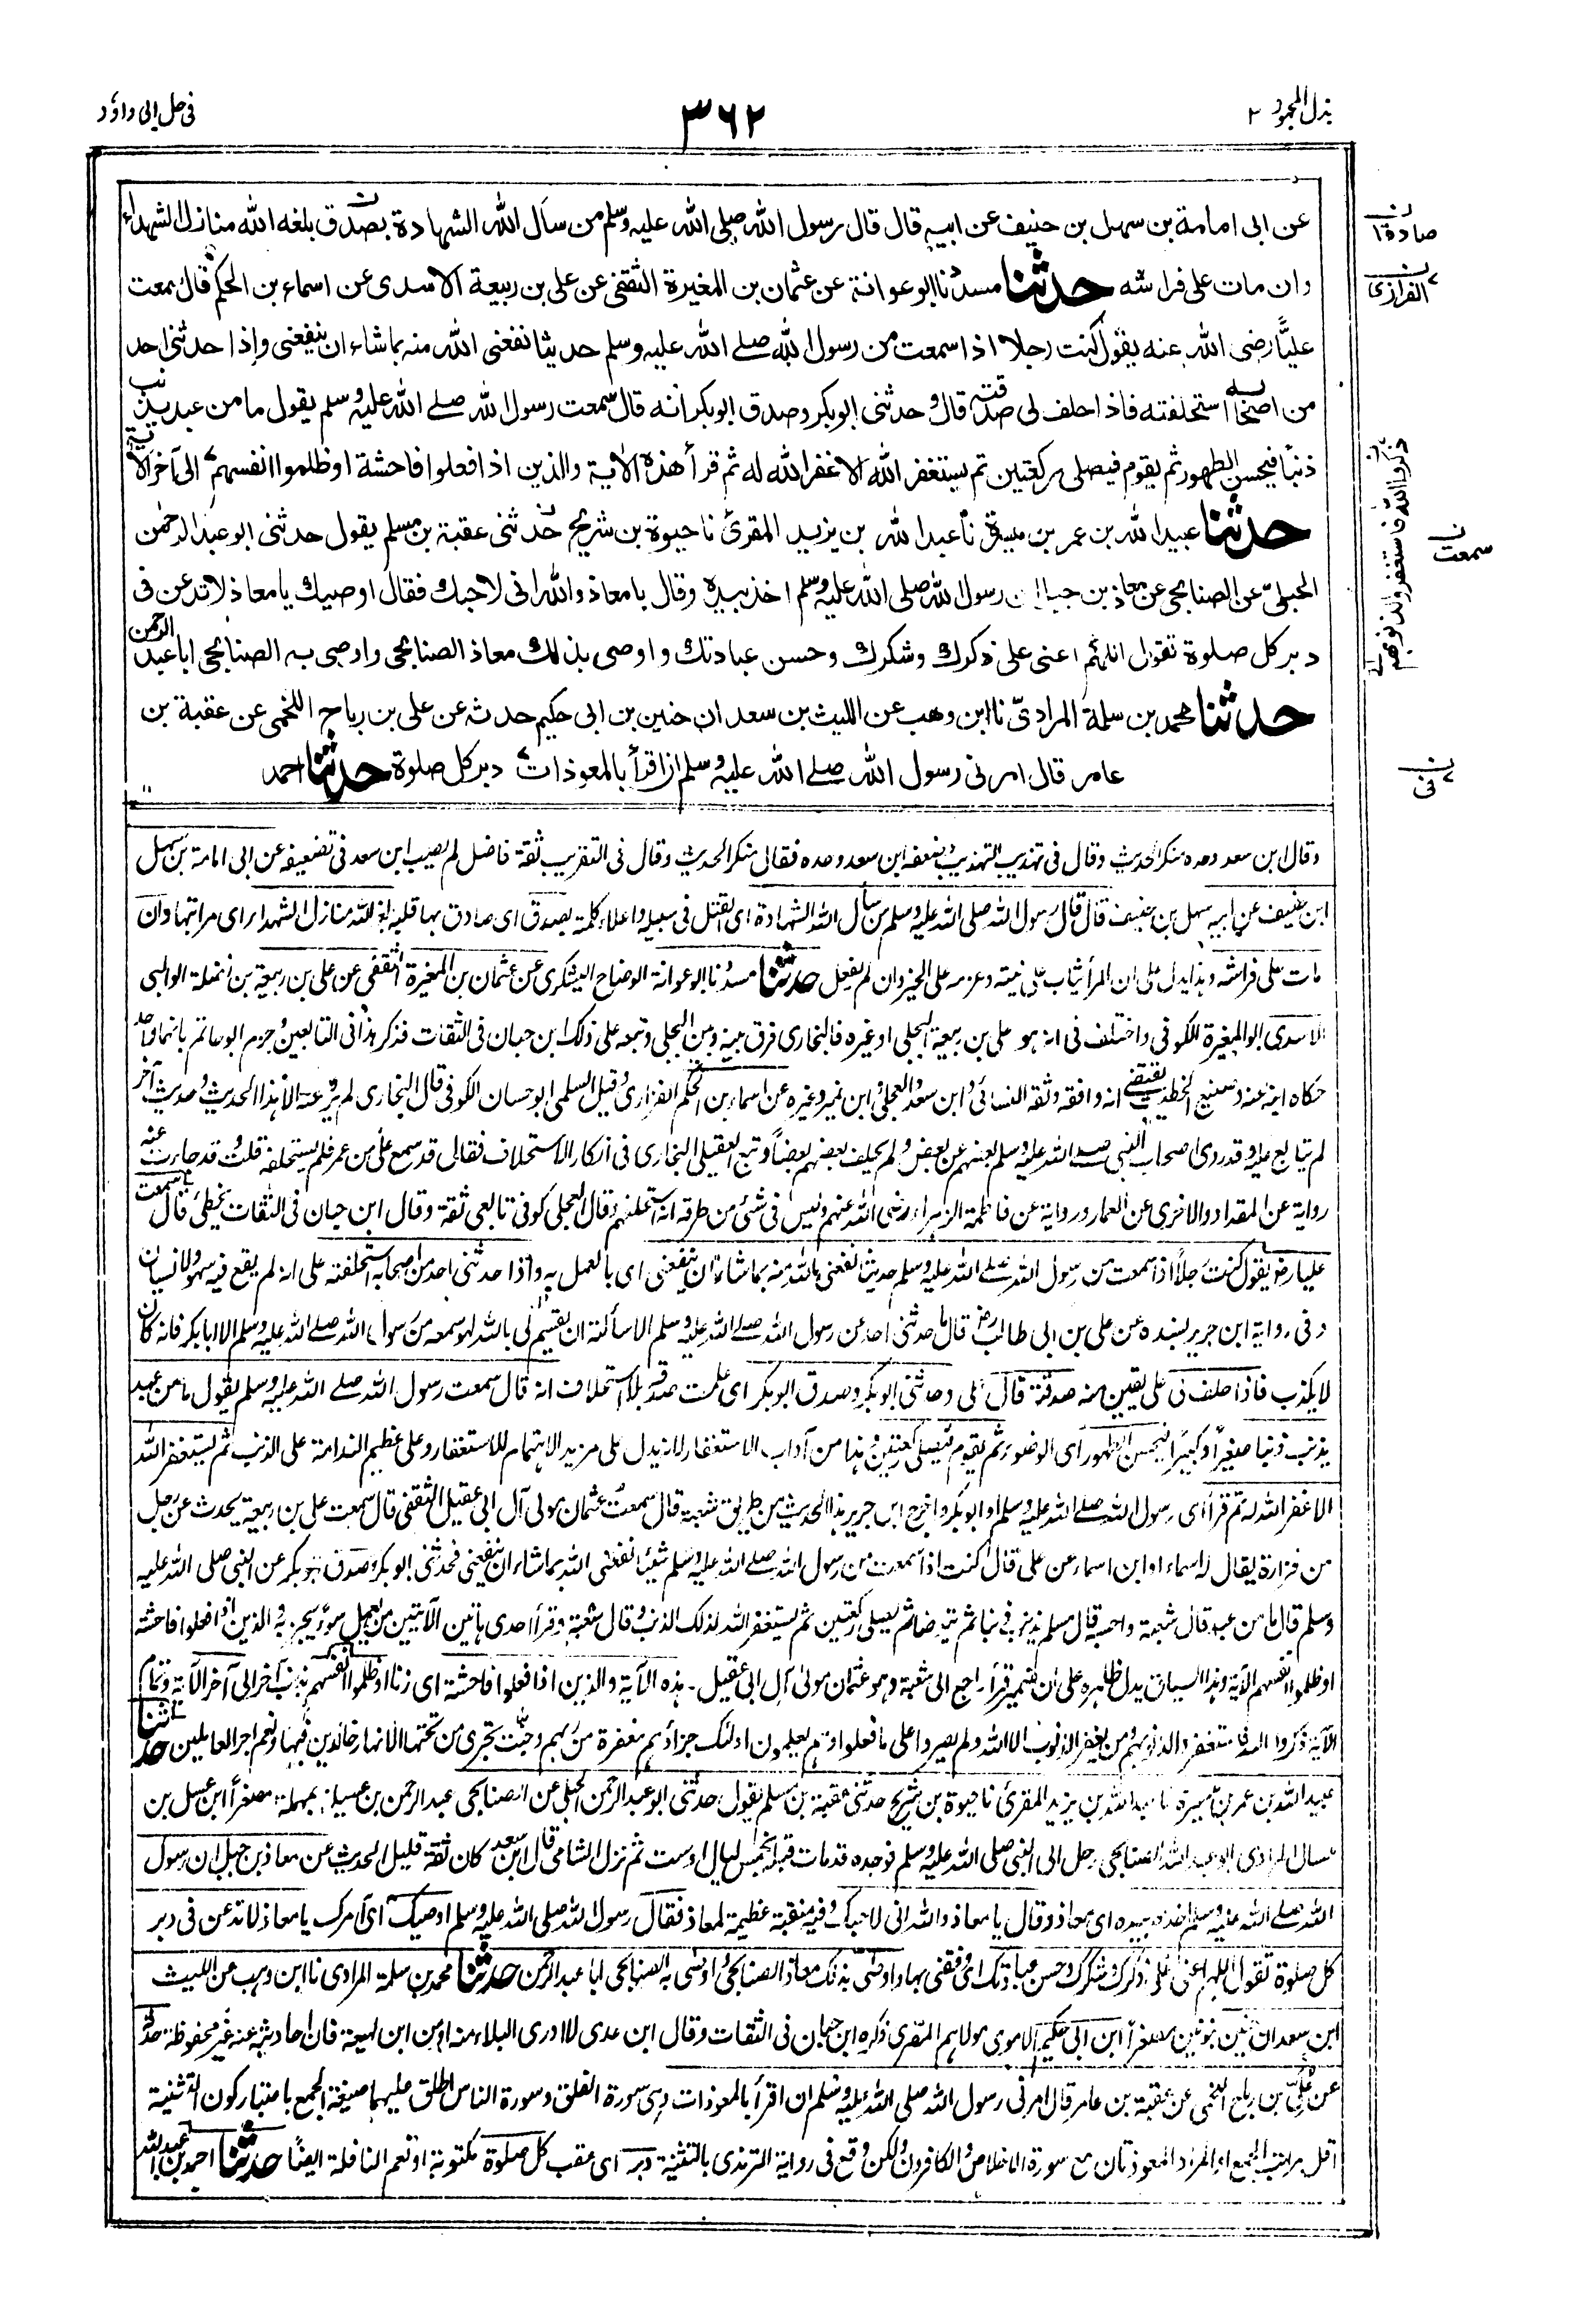 بذل المجهود ٢
٣٦٢
فى حل ابى داؤد
عن ابى امامة بن سهل بن حنيف عن ابيه قال قال رسول الله صلى الله عليه وسلم من سأل الله الشهادة بصدق بلغه الله منازل الشهداء
وان مات على فراشه حدثنا مسدد نا ابو عوانة عن عثمان بن المغيرة الثقفى عن على بن ربيعة الاسدى عن اسماء بن الحكم قال سمعت
عليًّا رضى الله عنه يقول كنت رجلا اذا سمعت من رسول الله صلے الله عليه وسلم حديثا نفعنى الله منه بما شاء ان ينفعنى وإذا حدثنى احد
من اصحابه استحلفته فاذا حلف لى صدقته قال وحدثنى ابوبكر وصدق ابوبكر انه قال سمعت رسول الله صلے الله عليه وسلم يقول ما من عبد يذنب
ذنبا فيحسن الطهور ثم يقوم فيصلى ركعتين ثم يستغفر الله الا غفر الله له ثم قرأ هذه الاية والذين اذا فعلوا فاحشة او ظلموا انفسهم الى آخر الاية
حدثنا عبيد الله بن عمر بن ميسرة نا عبد الله بن يزيد المقرئ نا حيوة بن شريح حدثنى عقبة بن مسلم يقول حدثنى ابو عبد الرحمن
الحبلىّ عن الصنابحى عن معاذ بن جبل ان رسول الله صلى الله عليه وسلم اخذ بيده وقال يا معاذ والله انى لاحبك فقال اوصيك يا معاذ لا تدعن فى
دبر كل صلوة تقول اللهم اعنى على ذكرك وشكرك وحسن عبادتك واوصى بذلك معاذ الصنابحى واوصى به الصنابحى ابا عبد الرحمن
حدثنا محمد بن سلمة المرادىّ نا ابن وهب عن الليث بن سعد ان حنين بن ابى حكيم حدثه عن على بن رباح اللخمى عن عقبة بن
عامر قال امرنى رسول الله صلے الله عليه وسلم ان اقرأ بالمعوذات دبر كل صلوة حدثنا احمد
صادقا
الفزارى
ذكروا الله فاستغفروا لذنوبهم
سمعت
وقال ابن سعد وحده منكر الحديث وقال فى تهذيب التهذيب وضعفه ابن سعد وحده فقال منكر الحديث وقال فى التقريب ثقة فاضل لم يصب ابن سعد فى تضعيفه عن ابى امامة بن سهل
ابن حنيف عن ابيه سهل بن حنيف قال قال رسول الله صلى الله عليه وسلم من سأل الله الشهادة اى القتل فى سبيله واعلاء كلمته بصدق اى صادق بها قلبه بلغه الله منازل الشهداء اى مراتبها وان
مات على فراشه وهذا يدل على ان المرأ يثاب على نيته وعزمه على الخير وان لم يفعل حدثنا مسدد نا ابو عوانة الوضاح اليشكرى عن عثمان بن المغيرة الثقفى عن على بن ربيعة بن نضلة الوالبى
الاسدى ابو المغيرة الكوفى واختلف فى انه هو على بن ربيعة البجلى او غيره فالبخارى فرق بينه وبين البجلى وتبعه على ذلك ابن حبان فى الثقات فذكر هذا فى التابعين وجزم ابو حاتم بانهما واحد
حكاه ابنه عنه وصنيع الخطيب يقتضى انه وافقه وثقه النسائى وابن سعد والعجلى وابن نمير وغيره عن اسماء بن الحكم الفزارى وقيل السلمى ابو حسان الكوفى قال البخارى لم يرو عنه الا هذا الحديث وحديث آخر
لم يتابع عليه وقد روى اصحاب النبى صلے الله عليه وسلم بعضهم عن بعض ولم يحلف بعضهم بعضاً وتبع العقيلى البخارى فى انكار الاستحلاف فقال قد سمع على من عمر فلم يستحلفه قلت قد جاءت عنه
رواية عن المقداد والاخرى عن العمار ورواية عن فاطمة الزهراء رضى الله عنهم وليس فى شئ من طرقه انه استحلفهم وقال العجلى كوفى تابعى ثقة وقال ابن حبان فى الثقات يخطئ قال سمعت
عليا رضو يقول كنت رجلاً اذا سمعت من رسول الله صلے الله عليه وسلم حديثا نفعنى الله منه بما شاء ان ينفعنى اى بالعمل به واذا حدثنى احد من اصحابه استحلفته على انه لم يقع فيه سهو ولا نسيان
وفى رواية ابن جرير بسنده عن على بن ابى طالب قال ما حدثنى احد عن رسول الله صلے الله عليه وسلم الا سألته ان يقسم لى بالله لهو سمعه من رسول الله صلے الله عليه وسلم الا ابا بكر فانه كان
لا يكذب فاذا حلف لى على يقين منه صدقته قال على وحدثنى ابوبكر وصدق ابوبكر اى علمت صدقه بلا استحلاف انه قال سمعت رسول الله صلے الله عليه وسلم يقول ما من عبد
يذنب ذنبا صغيراً او كبيراً فيحسن الطهور اى الوضوء ثم يقوم فيصلى ركعتين وهذا من آداب الاستغفار لانه يدل على مزيد الاهتمام للاستغفار وعلى عظيم الندامة على الذنب ثم يستغفر الله
الا غفر الله له ثم قرأ اى رسول الله صلے الله عليه وسلم او ابوبكر واخرج ابن جرير هذا الحديث من طريق شعبة قال سمعت عثمان مولى آل ابى عقيل الثقفى قال سمعت على بن ربيعة يحدث عن رجل
من فزارة يقال له اسماء او ابن اسماء عن على قال كنت اذا سمعت من رسول الله صلے الله عليه وسلم شيئا نفعنى الله بما شاء ان ينفعنى فحدثنى ابوبكر وصدق ابوبكر عن النبى صلى الله عليه
وسلم قال ما من عبد قال شعبة واحسبه قال مسلم يذنب ذنبا ثم يتوضأ ثم يصلى ركعتين ثم يستغفر الله لذلك الذنب وقال شعبة وقرأ احدى هاتين الآيتين من يعمل سوءً يجز به والذين اذا فعلوا فاحشة
او ظلموا انفسهم الآية وهذا السياق يدل ظاهره على ان ضمير قرأ راجع الى شعبة وهو عثمان مولى آل ابى عقيل۔ هذه الآية والذين اذا فعلوا فاحشة اى زنا او ظلموا انفسهم بذنب آخر الى آخر الآية وتمام
الآية ذكروا الله فاستغفروا لذنوبهم ومن يغفر الذنوب الا الله ولم يصروا على ما فعلوا وهم يعلمون اولئك جزاؤهم مغفرة من ربهم وجنّت تجرى من تحتها الانهار خالدين فيها ونعم اجر العاملين حدثنا
عبيد الله بن عمر بن ميسرة نا عبد الله بن يزيد المقرئ نا حيوة بن شريح حدثنى عقبة بن مسلم يقول حدثنى ابو عبد الرحمن الحبلى عن الصنابحى عبد الرحمن بن عسيلة بمهملة مصغراً ابن عسل بن
عسال المرادى ابو عبد الله الصنابحى رحل الى النبى صلى الله عليه وسلم فوجده قد مات قبله بخمس ليال او ست ثم نزل الشام قال ابن سعد كان ثقة قليل الحديث عن معاذ بن جبل ان رسول
الله صلے الله عليه وسلم اخذ بيده اى معاذ وقال يا معاذ والله انى لاحبك وفيه منقبة عظيمة لمعاذ فقال رسول الله صلى الله عليه وسلم اوصيك اى آمرك يا معاذ لا تدعن فى دبر
كل صلوة تقول اللهم اعنى على ذكرك وشكرك وحسن عبادتك اى وفقنى بها واوصى بذلك معاذ الصنابحى واوصى به الصنابحى ابا عبد الرحمن حدثنا محمد بن سلمة المرادى نا ابن وهب عن الليث
ابن سعد ان حنين بنونين مصغراً ابن ابى حكيم الاموى مولاهم المصرى ذكره ابن حبان فى الثقات وقال ابن عدى لا ادرى البلاء منه او من ابن لهيعة فان احاديثه عنه غير محفوظة حدثه
عن علىّ بن رباح اللخمى عن عقبة بن عامر قال امرنى رسول الله صلى الله عليه وسلم ان اقرأ بالمعوذات وهى سورة الفلق وسورة الناس اطلق عليهما صيغة الجمع باعتبار كون التثنية
اقل مراتب الجمع او المراد المعوذتان مع سورة الاخلاص والكافرون ولكن وقع فى رواية الترمذى بالتثنية دبر اى عقب كل صلوة مكتوبة او تعم النافلة ايضًا حدثنا احمد بن عبد الله